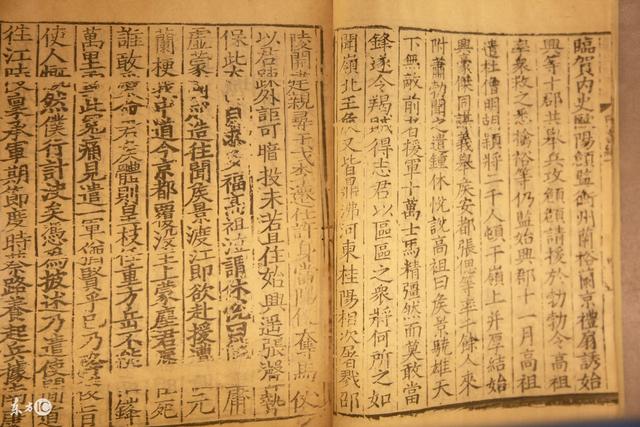 臨賀內史歐陽頠監衡州蘭裕蘭京禮扇誘始
興等十郡共舉兵攻頠頠請援於勃勃令高祖
率衆救之悉擒裕等仍監始興郡十一月高祖
遣杜僧明胡穎將二千人頓于嶺上并厚結始
興豪傑同謀義舉侯安都張偲等率千餘人來
附蕭勃聞之遣鍾休悅說高祖曰侯景驍雄天
下無敵前者援軍十萬士馬精彊然而莫敢當
鋒遂令羯賊得志君以區區之衆將何所之如
聞嶺北王侯又皆鼎沸河東桂陽相次屠戮邵
陵開建親尋干戈李遷仕許身當陽便奪馬仗
以君疎外詎可暗投未若且住始興遙張聲勢
保此太山自求多福高祖泣謂休悅曰庸
虛蒙國成造往聞侯景渡江即欲赴援遭元
蘭梗我中道今京都覆沒主上蒙塵君辱臣死
誰敢愛命君侯體則皇枝任重方岳不能摧鋒
萬里雪此冤痛見遣一軍猶賢乎已乃旨
使人慨然僕行計決矣憑為披述乃遣使間道
往江陵稟承軍期節度時蔡路養起兵據南
东方IC